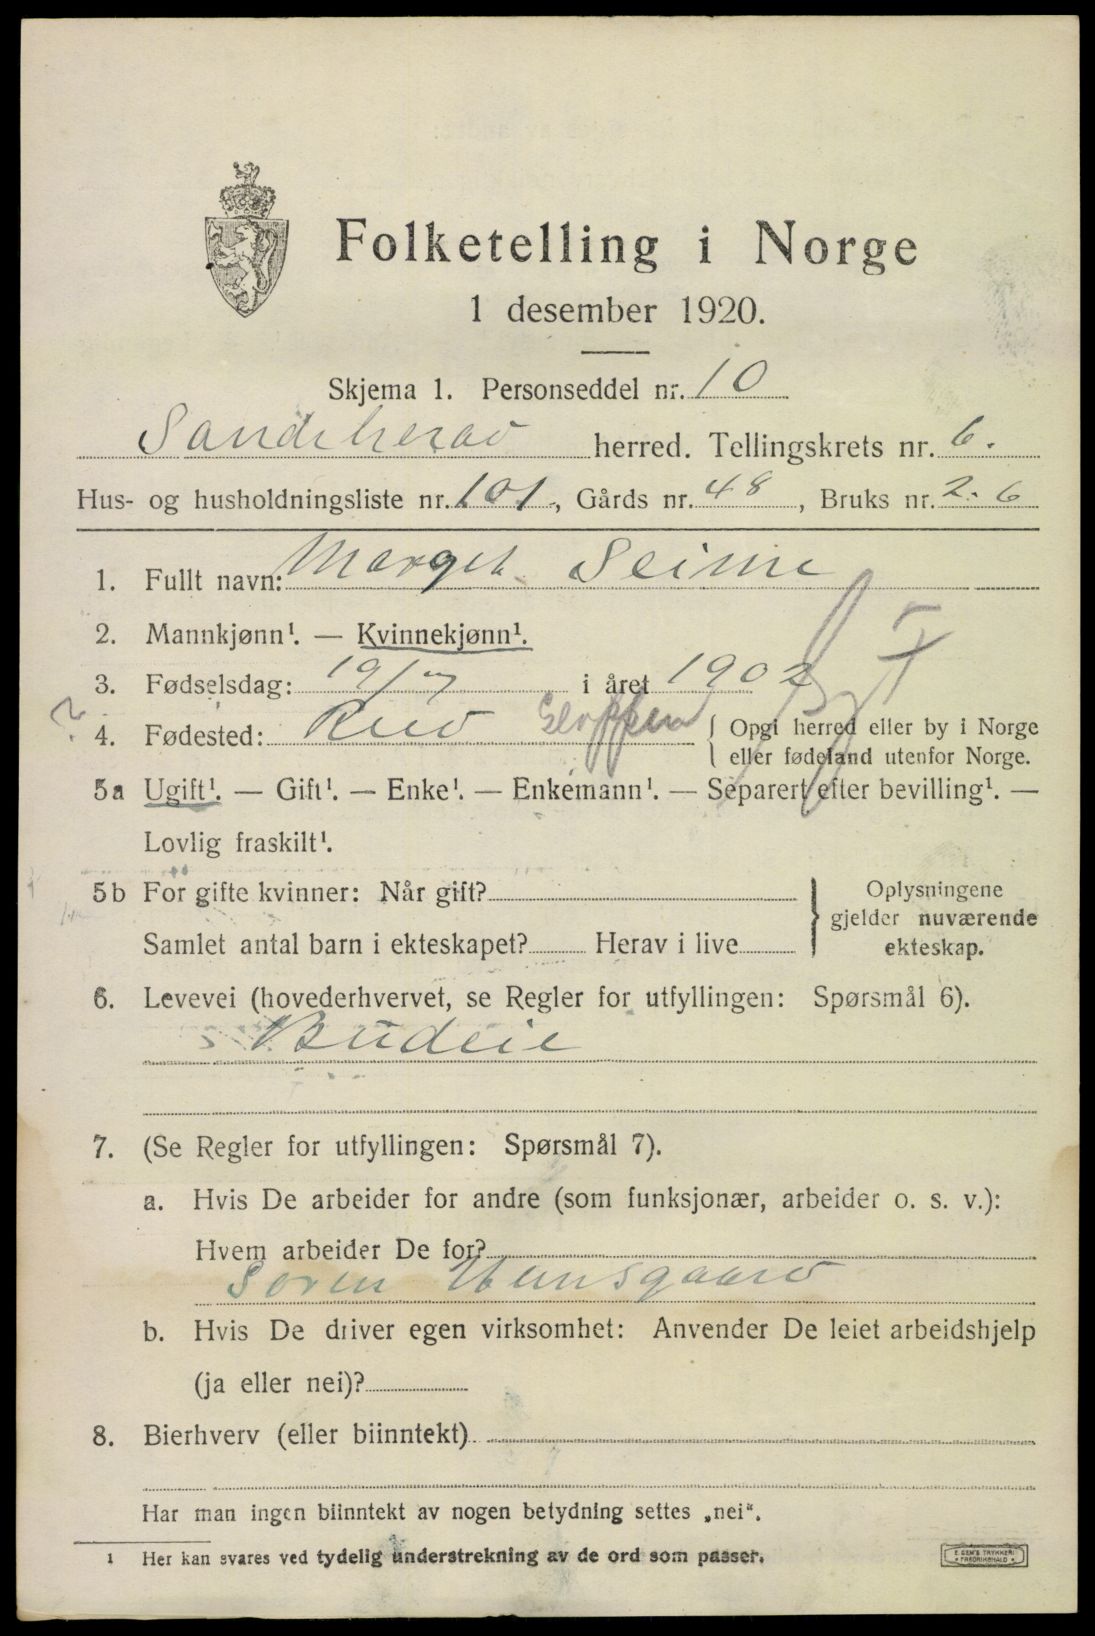 Folketelling i Norge
1 desember 1920.
Skjema 1. Personseddel nr. 10
Sandeherad herred. Tellingskrets nr. 6.
Hus- og husholdningsliste nr. 101, Gårds nr. 48, Bruks nr. 2-6
1. Fullt navn: Marget Seime
2. Mannkjønn¹. — Kvinnekjønn¹.
3. Fødselsdag: 19/7 i året 1902
? 4. Fødested: Gloppen { Opgi herred eller by i Norge
eller fødeland utenfor Norge.
5a Ugift¹. — Gift¹. — Enke¹. — Enkemann¹. — Separert efter bevilling¹. —
Lovlig fraskilt¹.
5b For gifte kvinner: Når gift?
Samlet antal barn i ekteskapet? Herav i live
} Oplysningene
gjelder nuværende
ekteskap.
6. Levevei (hovederhvervet, se Regler for utfyllingen: Spørsmål 6).
Budeie
7. (Se Regler for utfyllingen: Spørsmål 7).
a. Hvis De arbeider for andre (som funksjonær, arbeider o. s. v.):
Hvem arbeider De for?
Soren Unnsgaard
b. Hvis De driver egen virksomhet: Anvender De leiet arbeidshjelp
(ja eller nei)?
8. Bierhverv (eller biinntekt)
Har man ingen biinntekt av nogen betydning settes „nei“.
1 Her kan svares ved tydelig understrekning av de ord som passer.
E. SEM'S TRYKKERI
FREDRIKSHALD